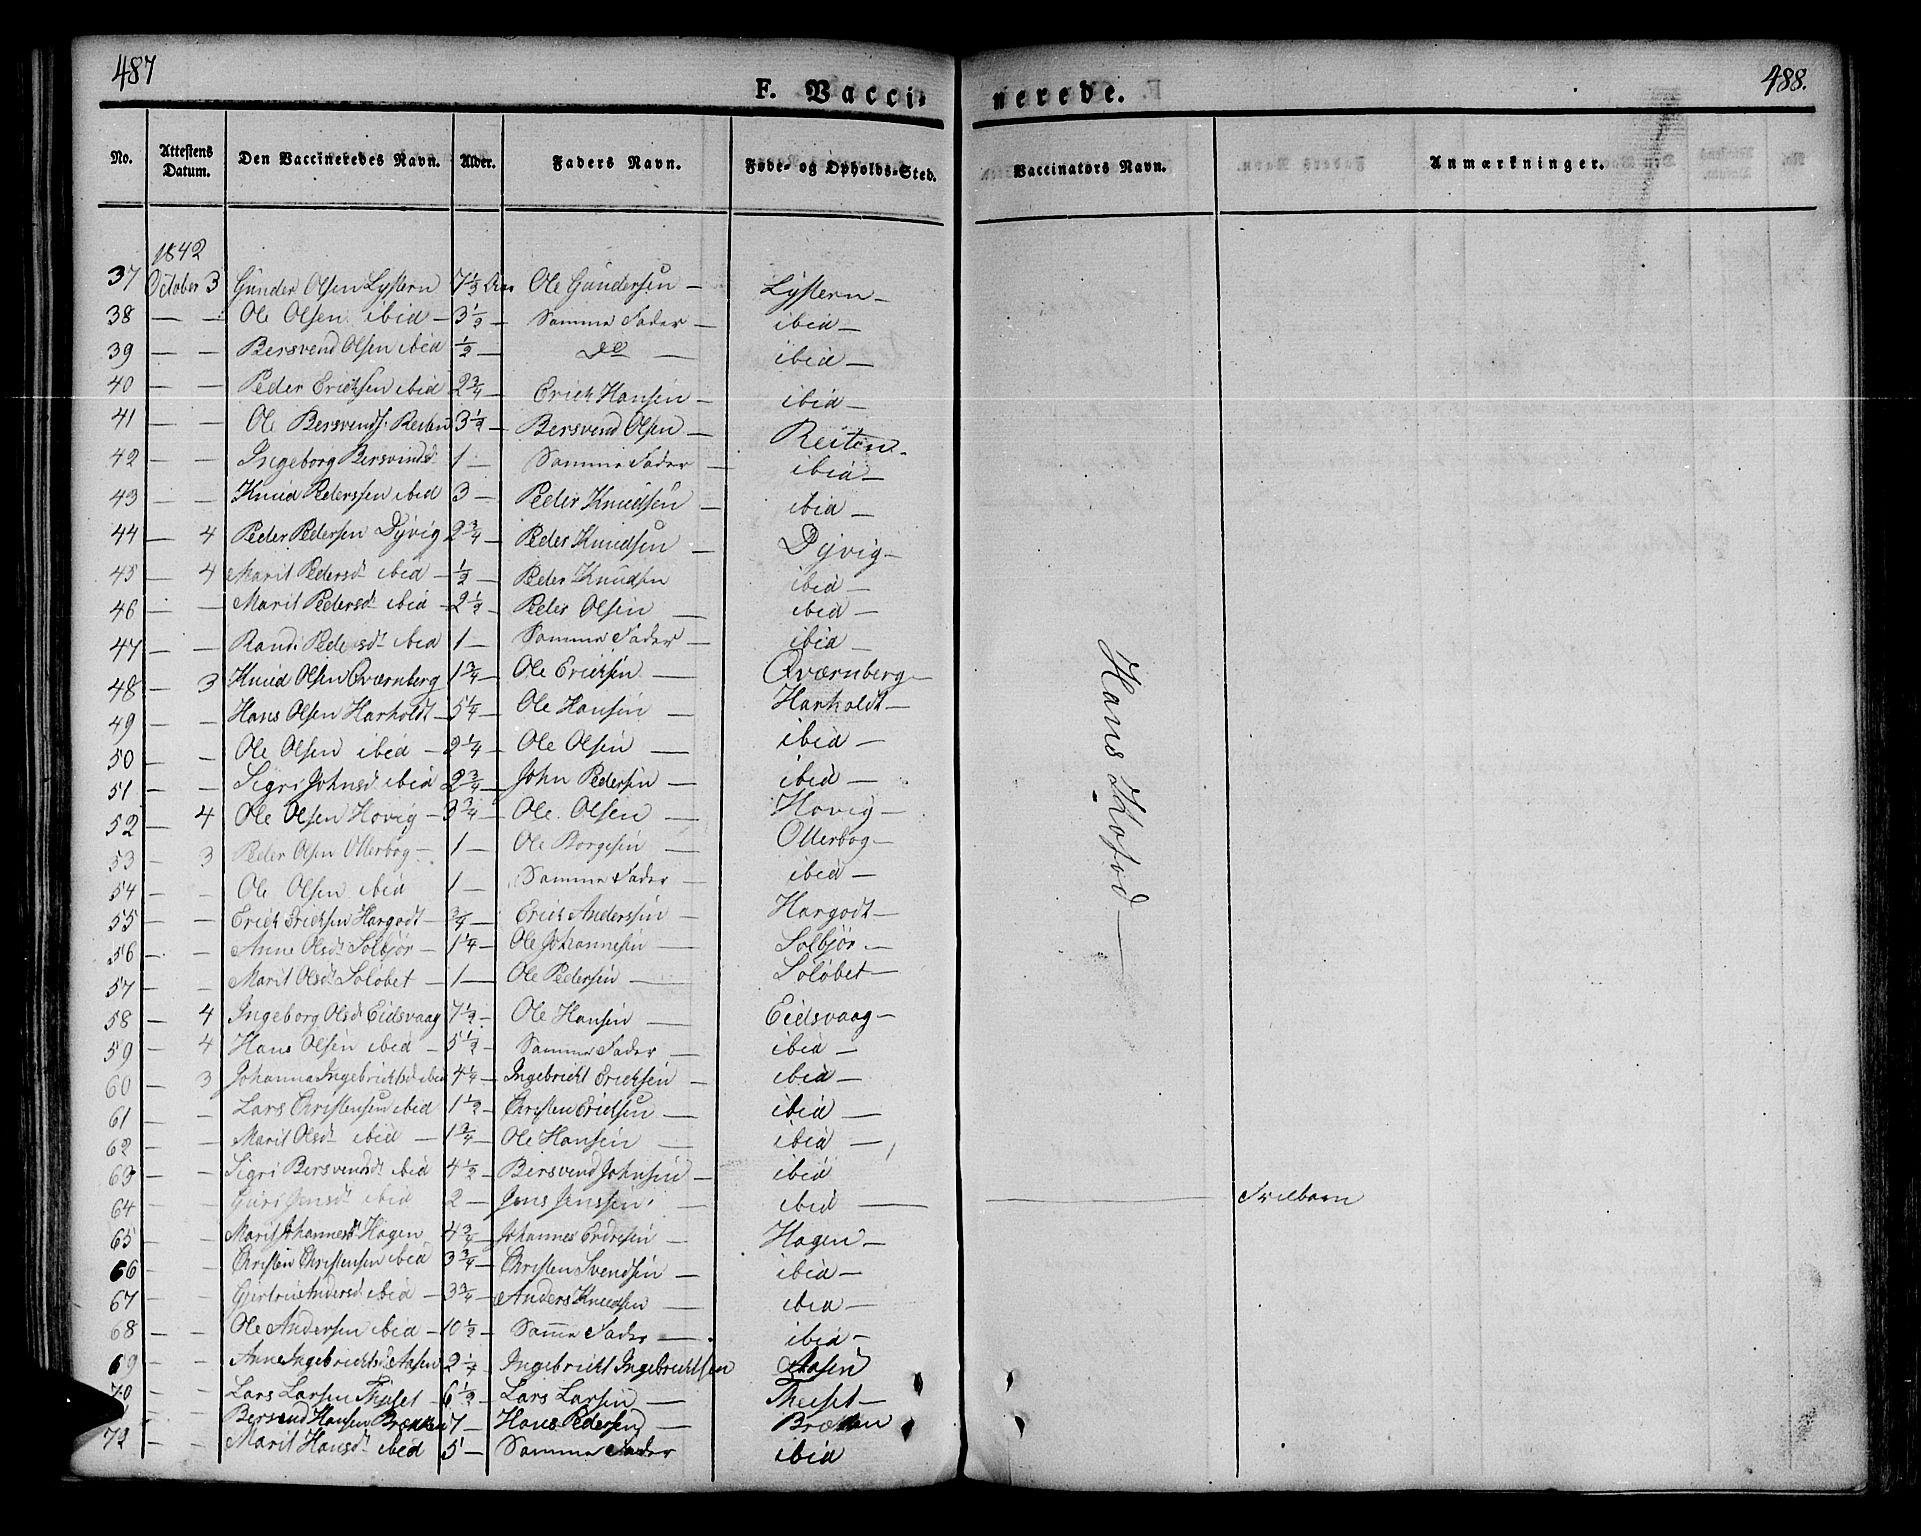 487
F. Vacci-
nerede.
488.
No. Attestens Datum. Den Vaccineredes Navn. Alder. Faders Navn. Føde- og Opholds-Sted. Vaccinators Navn. Anmærkninger.
1842
37 October 3 Gunder Olsen Lystern 7 1/2 Ole Gundersen — Lystern —
38 — — Ole Olsen ibid — 3 1/2 — Samme Fader — ibid —
39 — — Bersvend Olsen ibid 1/2 — do — ibid —
40 — — Peder Ericksen ibid 2 3/4 — Erick Hansen — ibid —
41 — — Ole Bersvends. Reiten 3 1/2 — Bersvend Olsen — Reiten —
42 — — Ingeborg Bersvindsd 1 — Samme Fader — ibid —
43 — — Knud Pederssen ibid 3 — Peder Knudsen — ibid —
44 — 4 Peder Pedersen Dyvig 2 3/4 — Peder Knudsen — Dyvig —
45 — 4 Marit Pedersd ibid — 1/2 — Peder Knudsen ibid —
46 — — Marit Pedersd ibid — 2 1/2 — Peder Olsen — ibid —
47 — — Rand. Pedersdt ibid 1 — Samme Fader — ibid —
48 — 3 Knud Olsen Qværnberg 1 3/4 — Ole Ericksen — Qværnberg —
49 — — Hans Olsen Harholdt — 5 1/4 — Ole Hansen — Harholdt —
50 — — Ole Olsen ibid — 2 1/4 — Ole Olsen — ibid —
51 — — Sigri Johnsd ibid 2 3/4 — John Pedersen — ibid —
52 — 4 Ole Olsen Hovig — 3 3/4 — Ole Olsen — Hovig —
53 — 3 Peder Olsen Otterbog — 1 — Ole Borgesen — Otterbog —
54 — — Ole Olsen ibid 1 — Samme Fader — ibid —
55 — — Erick Ericksen Hargodt — 3/4 — Erick Anderssen — Hargodt —
56 — — Anne Olsdt Solbjør — 1 1/4 — Ole Johannesen — Solbjør —
57 — — Marit Olsdt Soløbet — 1 — Ole Pedersen — Soløbet —
58 — 4 Ingeborg Olsdt Eidsvaag 7 1/2 — Ole Hansen — Eidsvaag —
59 — 4 Hans Olsen ibid — 5 1/2 — Samme Fader — ibid —
60 — 3 Johanna Ingebrichtsd ibid 4 1/4 — Ingebricht Ericksen — ibid —
61 — Lars Christensen ibid 1 1/2 — Christen Ericksen — ibid —
62 — Marit Olsdt ibid — 1 3/4 — Ole Hansen — ibid —
63 — — Sigri Bersvendsdt ibid 4 1/2 — Bersvend Johnsen — ibid
64 — — Guri Jensdt ibid 2 — Jens Jenssen ibid —
65 — — Marit Johannesdt Hagen 4 3/4 — Johannes Endresen — Hagen —
66 — — Christen Christensen ibid 3 3/4 — Christen Svendsen — ibid —
67 — — Gjertrui Andersd ibid — 3 3/4 — Anders Knudsen — ibid —
68 — — Ole Andersen ibid — 10 1/2 — Samme Fader — ibid —
69 — — Anne Ingebrichtsd Aasen 2 1/4 — Ingebricht Ingebrichtsen Aasen
70 — — Lars Larsen Theset 6 1/2 — Lars Larsen — Theset —
— — Bersvend Hansen Brækken 7 — Hans Pedersen — Brækken
72 — — Marit Hansdt ibid 5 — Samme Fader ibid
Hans Kofod —